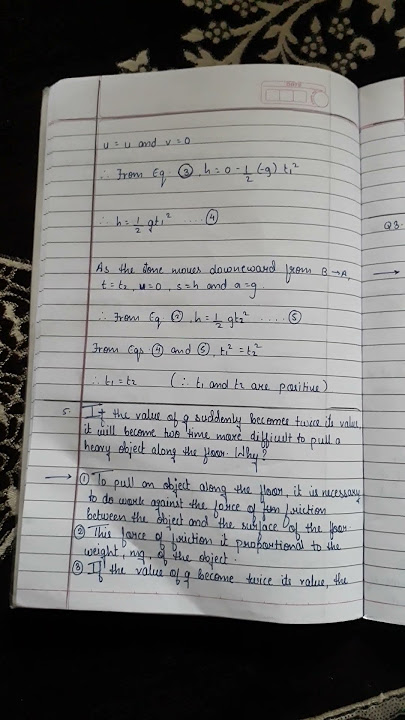 Date
u = u and v = 0
∴ From Eq. ③, h = 0 - 1/2 (-g) t₁²
∴ h = 1/2 gt₁² .... ④
Q3.
As the stone moves downeward from B → A,
t = t₂, u = 0, s = h and a = g.
∴ From Eq ②, h = 1/2 gt₂² ..... ⑤
From Eqs ④ and ⑤, t₁² = t₂²
∴ t₁ = t₂ (∵ t₁ and t₂ are positive)
5. If the value of g suddenly becomes twice its value,
it will become two time more difficult to pull a
heavy object along the floor. Why?
→ ① To pull an object along the floor, it is necessary
to do work against the force of friction
between the object and the surface of the floor.
② This force of friction it proportional to the
weight, mg, of the object.
③ If the value of g become twice its value, the